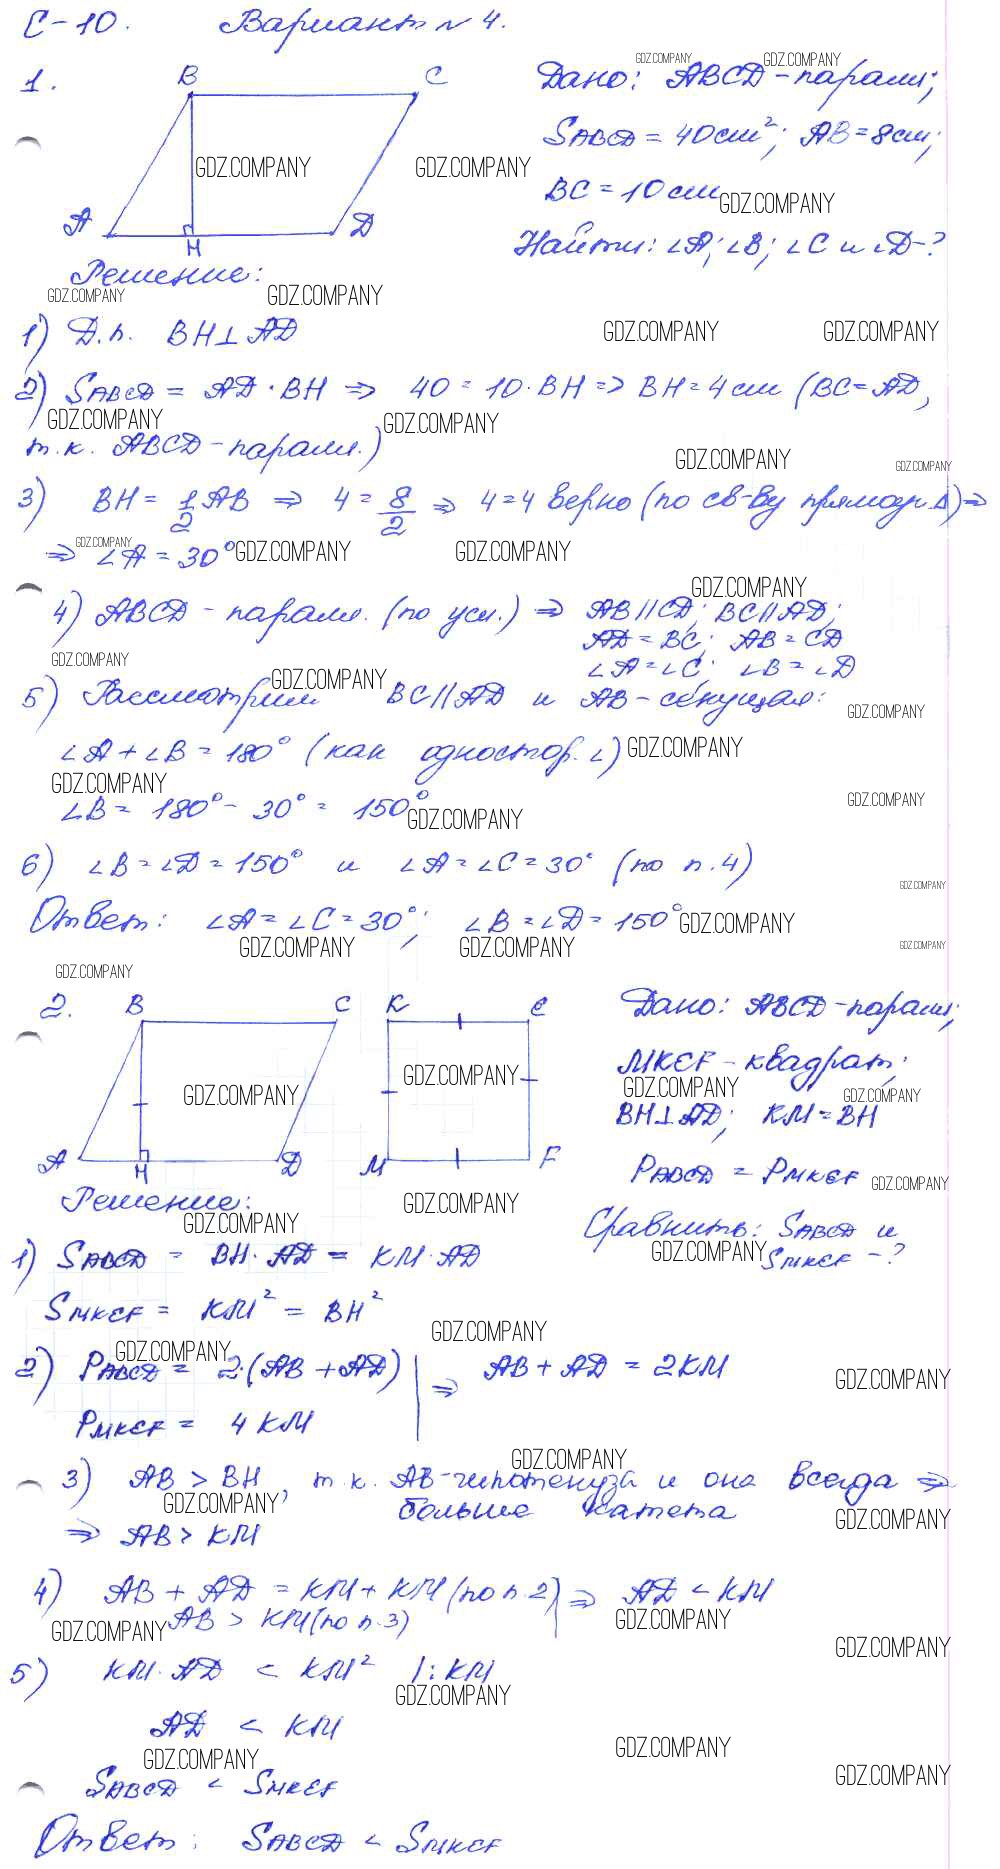 С-10. Вариант № 4.
1.
B C
A H D
Дано: ABCD - паралл;
SABCD = 40 см²; AB = 8 см;
BC = 10 см
Найти: ∠A; ∠B; ∠C и ∠D - ?
Решение:
1) Д.п. BH ⊥ AD
2) SABCD = AD · BH ⇒ 40 = 10 · BH ⇒ BH = 4 см (BC = AD,
т.к. ABCD - паралл.)
3) BH = 1/2 AB ⇒ 4 = 8/2 ⇒ 4 = 4 верно (по св-ву прямоуг. Δ) ⇒
⇒ ∠A = 30°
4) ABCD - паралл. (по усл.) ⇒ AB || CD; BC || AD;
AD = BC; AB = CD
∠A = ∠C; ∠B = ∠D
5) Рассмотрим BC || AD и AB - секущая:
∠A + ∠B = 180° (как одностор. ∠)
∠B = 180° - 30° = 150°
6) ∠B = ∠D = 150° и ∠A = ∠C = 30° (по п. 4)
Ответ: ∠A = ∠C = 30°; ∠B = ∠D = 150°
2.
B C K E
A H D M F
Дано: ABCD - паралл;
MKEF - квадрат;
BH ⊥ AD; KM = BH
PABCD = PMKEF
Сравнить: SABCD и
SMKEF - ?
Решение:
1) SABCD = BH · AD = KM · AD
SMKEF = KM² = BH²
2) PABCD = 2 · (AB + AD) | ⇒ AB + AD = 2KM
PMKEF = 4 KM
3) AB > BH, т.к. AB - гипотенуза и она всегда ⇒
больше катета
⇒ AB > KM
4) AB + AD = KM + KM (по п. 2) | ⇒ AD < KM
AB > KM (по п. 3)
5) KM · AD < KM² | : KM
AD < KM
SABCD < SMKEF
Ответ: SABCD < SMKEF
GDZ.COMPANY